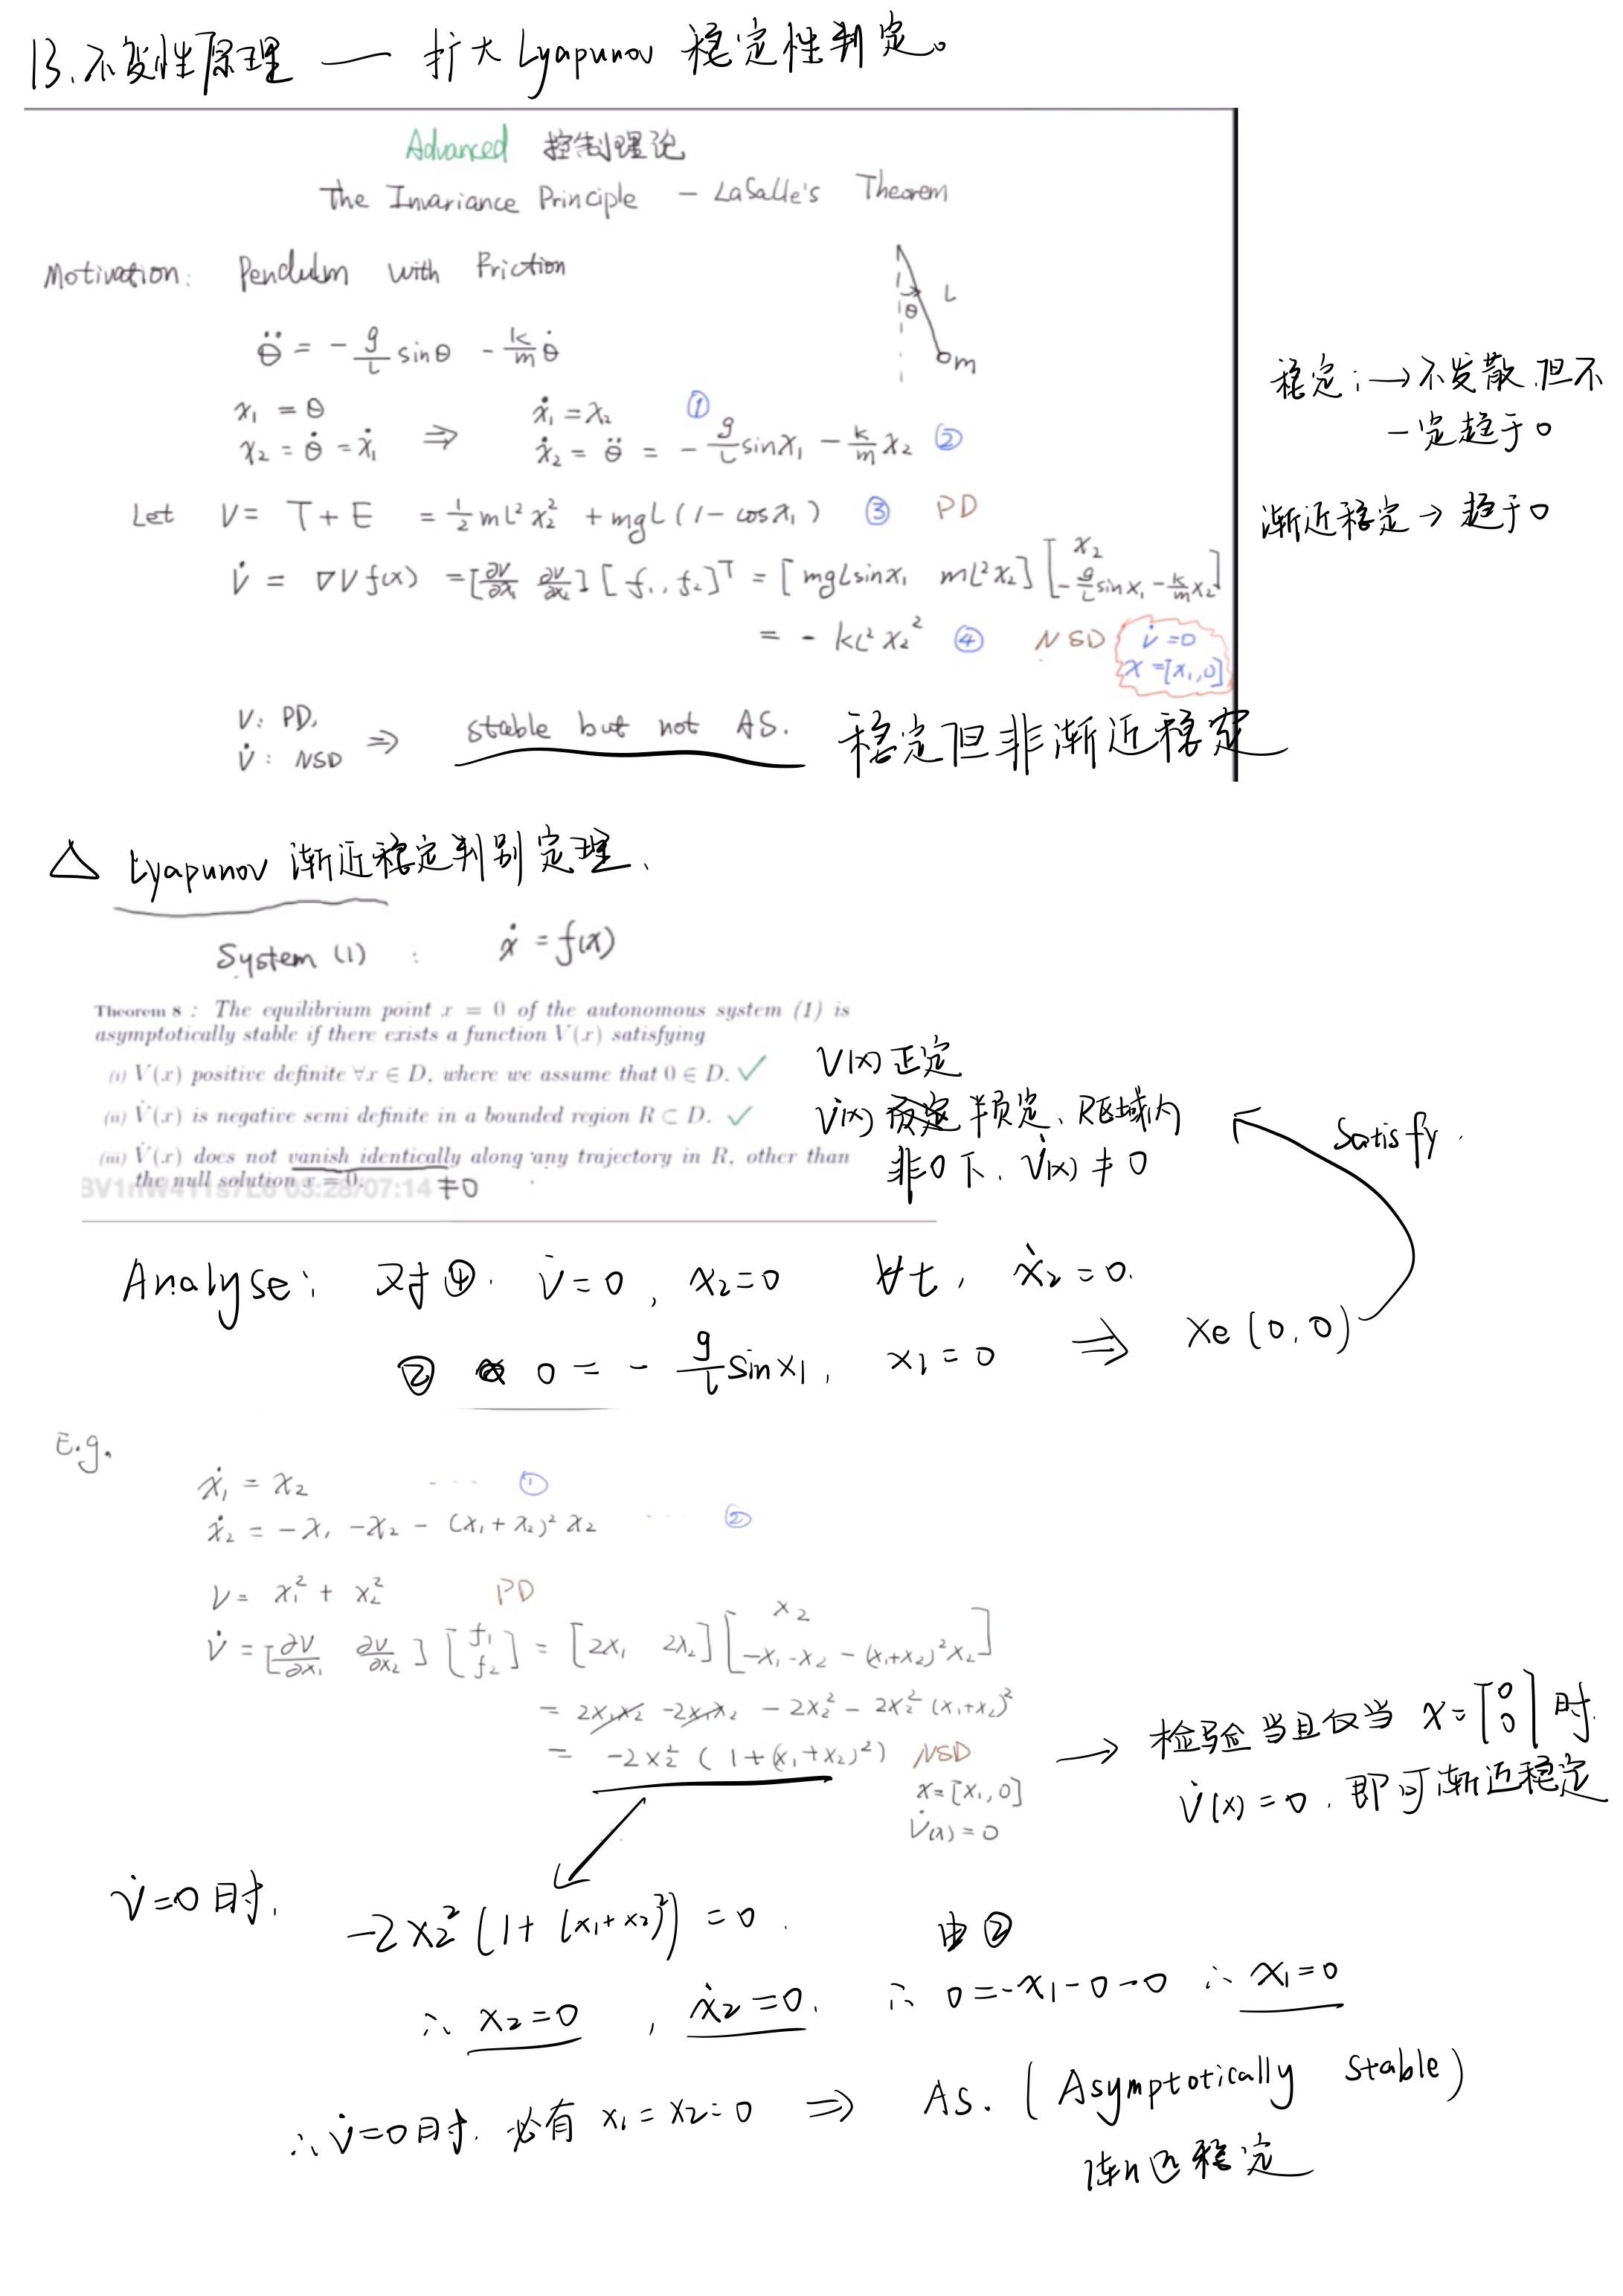 13. 不变性原理 — 扩大 Lyapunov 稳定性判定。
Advanced 控制理论
The Invariance Principle - LaSalle's Theorem
Motivation: Pendulm with Friction
θ̈ = - g/L sinθ - k/m θ̇
L
θ
m
x₁ = θ ẋ₁ = x₂ ①
x₂ = θ̇ = ẋ₁ ⇒ ẋ₂ = θ̈ = - g/L sinx₁ - k/m x₂ ②
稳定: → 不发散, 但不
一定趋于0
渐近稳定 → 趋于0
Let V = T + E = 1/2 mL² x₂² + mgL (1 - cosx₁) ③ PD
V̇ = ∇V f(x) = [∂V/∂x₁ ∂V/∂x₂] [f₁, f₂]ᵀ = [mgLsinx₁ mL²x₂] [x₂ ; -g/L sinx₁ - k/m x₂]
= - kL² x₂² ④ NSD V̇ = 0
x = [x₁, 0]
V: PD,
V̇: NSD ⇒ stable but not AS. 稳定但非渐近稳定
△ Lyapunov 渐近稳定判别定理、
System (1) : ẋ = f(x)
Theorem 8 : The equilibrium point x = 0 of the autonomous system (1) is
asymptotically stable if there exists a function V(x) satisfying
(i) V(x) positive definite ∀x ∈ D, where we assume that 0 ∈ D. ✓
(ii) V̇(x) is negative semi definite in a bounded region R ⊂ D. ✓
(iii) V̇(x) does not vanish identically along any trajectory in R, other than
the null solution x = 0. ≠0
03:28/07:14
V(x) 正定
V̇(x) 半负定、R区域内
非0下, V̇(x) ≠ 0
Satisfy.
Analyse: 对④. V̇=0, x₂=0 ∀t, ẋ₂=0.
② 0 = - g/L sinx₁, x₁ = 0 ⇒ Xe (0, 0)
E.g.
ẋ₁ = x₂ ... ①
ẋ₂ = -x₁ - x₂ - (x₁ + x₂)² x₂ ... ②
V = x₁² + x₂² PD
V̇ = [∂V/∂x₁ ∂V/∂x₂] [f₁ ; f₂] = [2x₁ 2x₂] [x₂ ; -x₁ - x₂ - (x₁+x₂)²x₂]
= 2x₁x₂ - 2x₁x₂ - 2x₂² - 2x₂² (x₁+x₂)²
= -2x₂² (1 + (x₁+x₂)²) NSD
x = [x₁, 0]
V̇(x) = 0
→ 检验当且仅当 x = [0 ; 0] 时.
V̇(x) = 0. 即可渐近稳定
V̇=0时,
-2x₂² (1 + (x₁+x₂)²) = 0.
∴ x₂=0, ẋ₂=0.
由②
∴ 0 = -x₁-0-0 ∴ x₁=0
∴ V̇=0时. 必有 x₁ = x₂ = 0 ⇒ AS. (Asymptotically stable)
渐近稳定